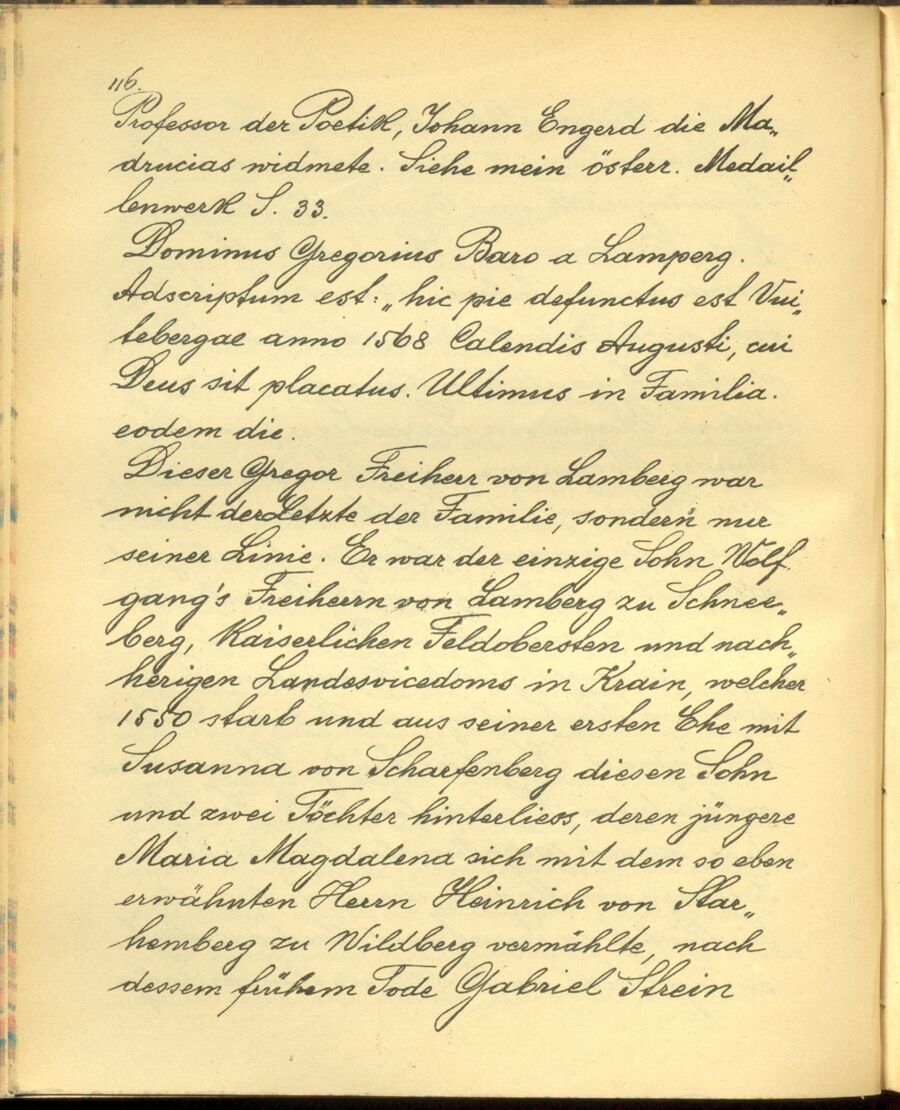 116.
Professor der Poetik, Johann Engerd die Ma„
drucias widmete. Siehe mein österr. Medail„
lenwerk S. 33.
Dominus Gregorius Baro a Lamperg.
Adscriptum est: „hic pie defunctus est Vui„
tebergae anno 1568 Calendis Augusti, cui
Deus sit placatus. Ultimus in Familia.
eodem die.
Dieser Gregor Freiherr von Lamberg war
nicht der Letzte der Familie, sondern nur
seiner Linie. Er war der einzige Sohn Wolf
gang's Freiherrn von Lamberg zu Schnee„
berg, Kaiserlichen Feldobersten und nach„
herigen Landesvicedoms in Krain, welcher
1550 starb und aus seiner ersten Ehe mit
Susanna von Scharfenberg diesen Sohn
und zwei Töchter hinterliess, deren jüngere
Maria Magdalena sich mit dem so eben
erwähnten Herrn Heinrich von Star„
hemberg zu Wildberg vermählte, nach
dessem frühem Tode Gabriel Strein